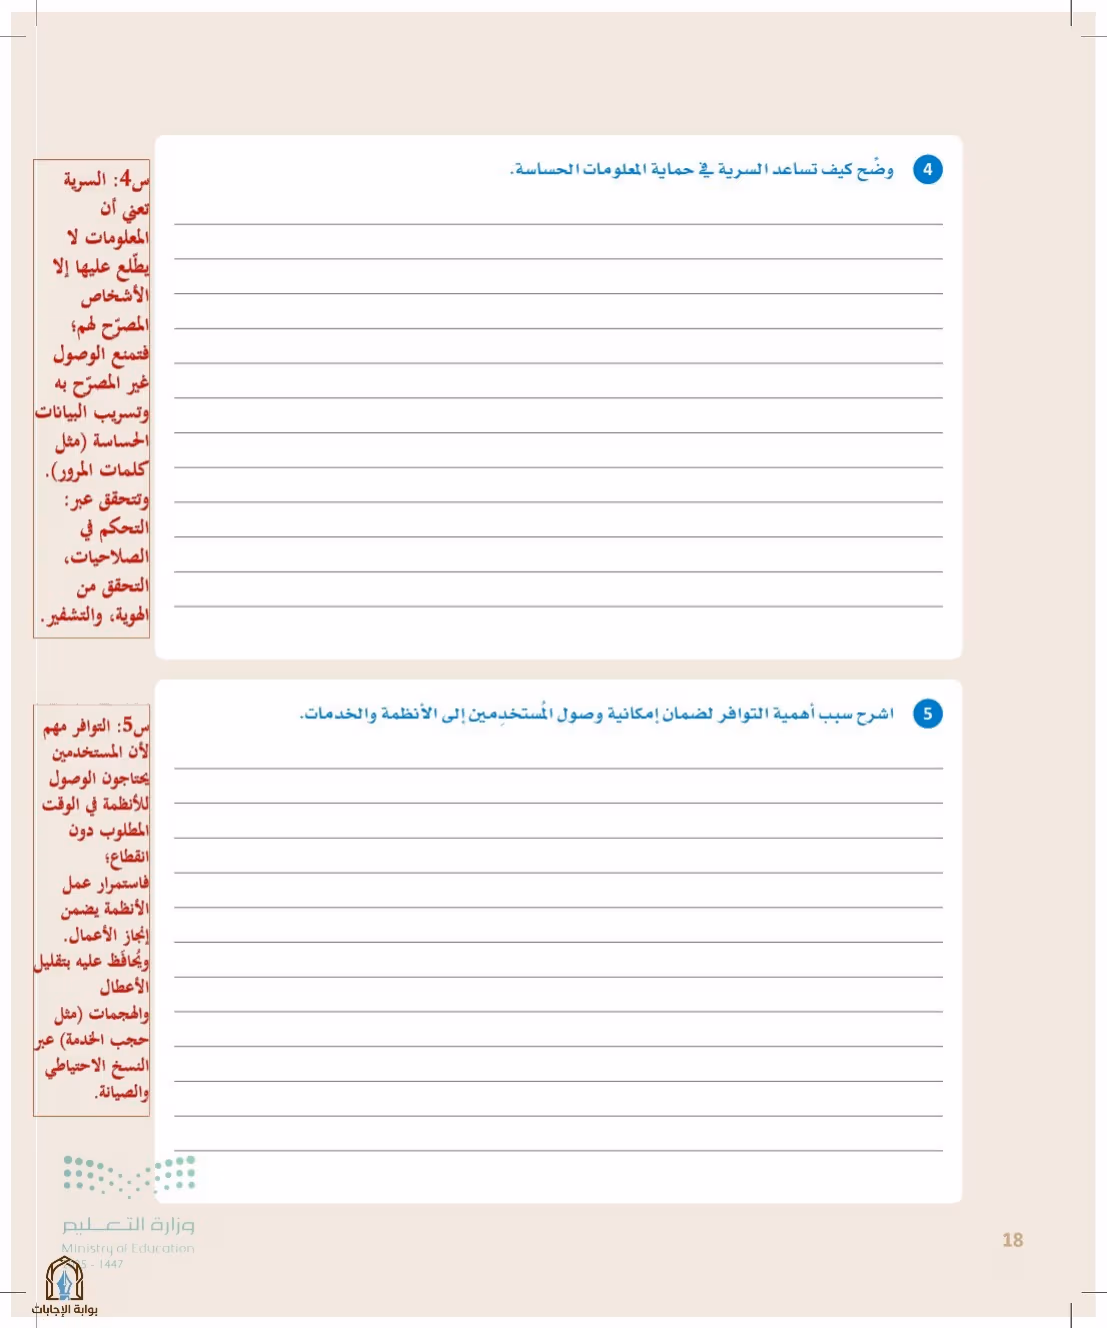 4 وضِّح كيف تساعد السرية في حماية المعلومات الحساسة.
س4: السرية
تعني أن
المعلومات لا
يطّلع عليها إلا
الأشخاص
المصرّح لهم؛
فتمنع الوصول
غير المصرّح به
وتسريب البيانات
الحساسة (مثل
كلمات المرور).
وتتحقق عبر:
التحكم في
الصلاحيات،
التحقق من
الهوية، والتشفير.
5 اشرح سبب أهمية التوافر لضمان إمكانية وصول المُستخدِمين إلى الأنظمة والخدمات.
س5: التوافر مهم
لأن المستخدمين
يحتاجون الوصول
للأنظمة في الوقت
المطلوب دون
انقطاع؛
فاستمرار عمل
الأنظمة يضمن
إنجاز الأعمال.
ويُحافَظ عليه بتقليل
الأعطال
والهجمات (مثل
حجب الخدمة) عبر
النسخ الاحتياطي
والصيانة.
وزارة التعـــليم
Ministry of Education
5 - 1447
18
بوابة الإجابات